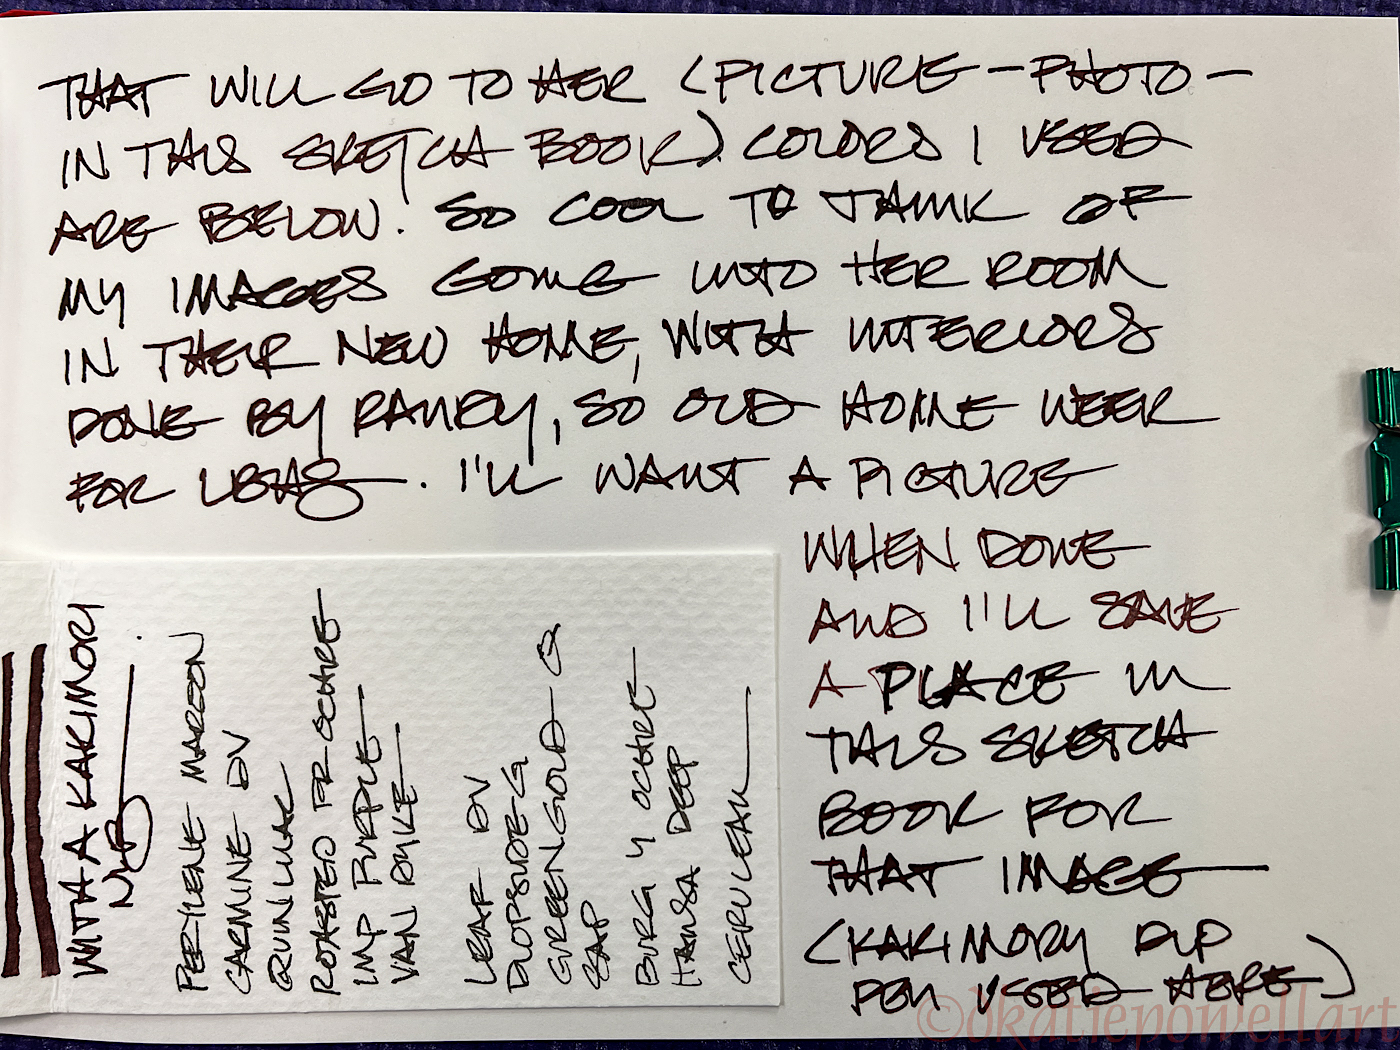 THAT WILL GO TO HER (PICTURE - PHOTO -
IN THIS SKETCH BOOK) COLORS I USED
ARE BELOW. SO COOL TO THINK OF
MY IMAGES GOING INTO HER ROOM
IN THEIR NEW HOME, WITH INTERIORS
DONE BY RANDY, SO OLD HOME WEEK
FOR US. I'LL WANT A PICTURE
WHEN DONE
AND I'LL SAVE
A PLACE IN
THIS SKETCH
BOOK FOR
THAT IMAGE
(KAKIMORY DIP
PEN USED HERE)
WITH A KAKIMORI
NIB.
PERYLENE MAROON
CARMINE DV
QUIN LILAC
ROASTED FR OCHRE
IMP PURPLE
VAN DYKE
LEAF DV
DIOPSIDE G
GREEN GOLD Q
SAP
BURG Y OCHRE
HANSA DEEP
CERULEAN
©dkatiepowellart